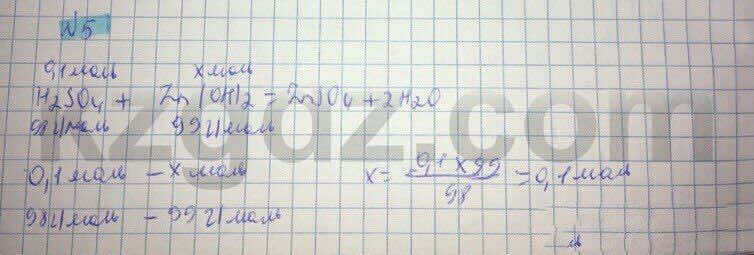 №5
0,1 моль х моль
H₂SO₄ + Zn(OH)₂ = ZnSO₄ + 2H₂O
98 г/моль 99 г/моль
0,1 моль – х моль x = 0,1 x 99 / 98 = 0,1 моль
98 г/моль – 99 г/моль
kzgdz.com